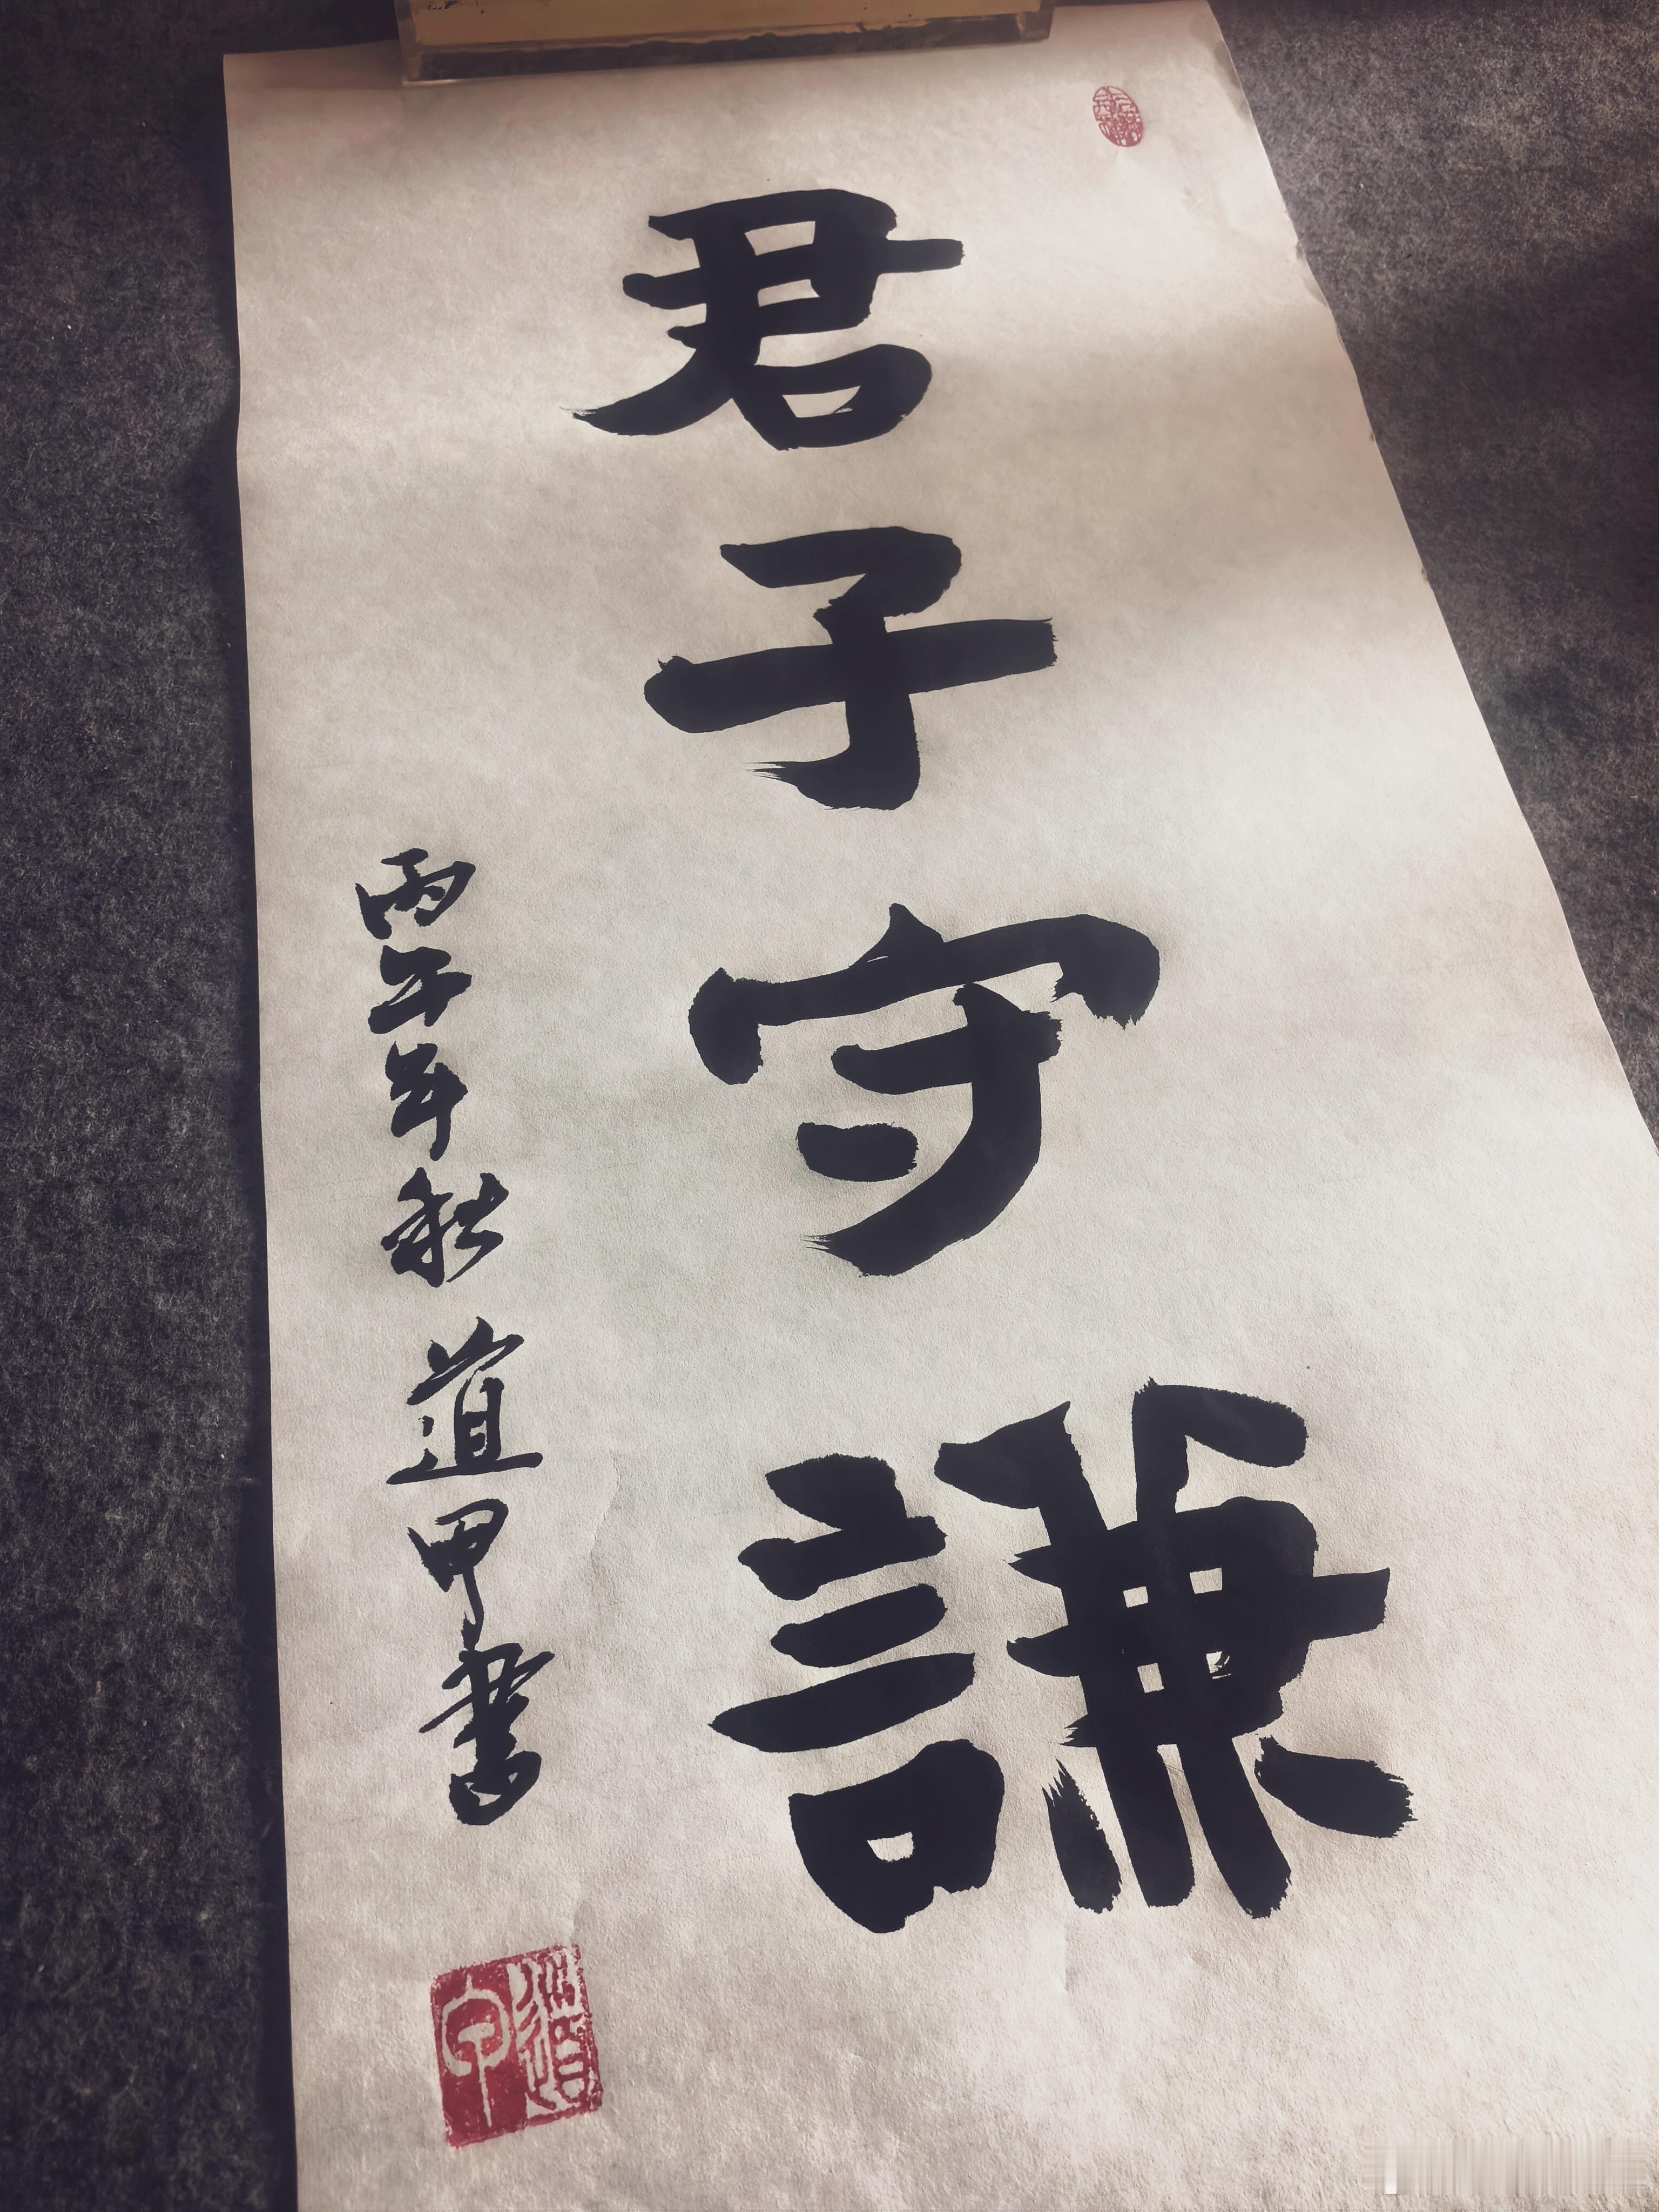 君子守謙
丙午年秋 道甲書
道甲